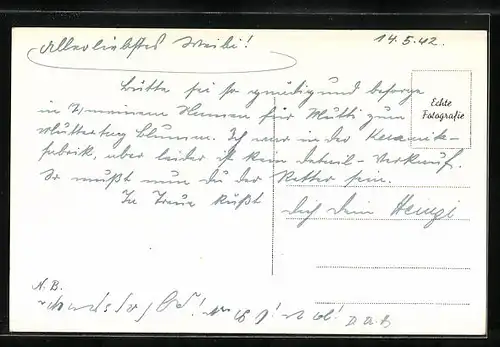 14.5.42.
Allerliebstes Weibi!
Bitte sei so gnädig und besorge
in Zu meinem Namen für Mutti zum
Muttertag Blumen. Ich war in der Keramik-
fabrik, aber leider ist kein Detail-Verkauf.
So mußt nun du der Retter sein.
In Treue küßt
dich dein Heinzi
Echte
Fotografie
N.B.
D.a.B